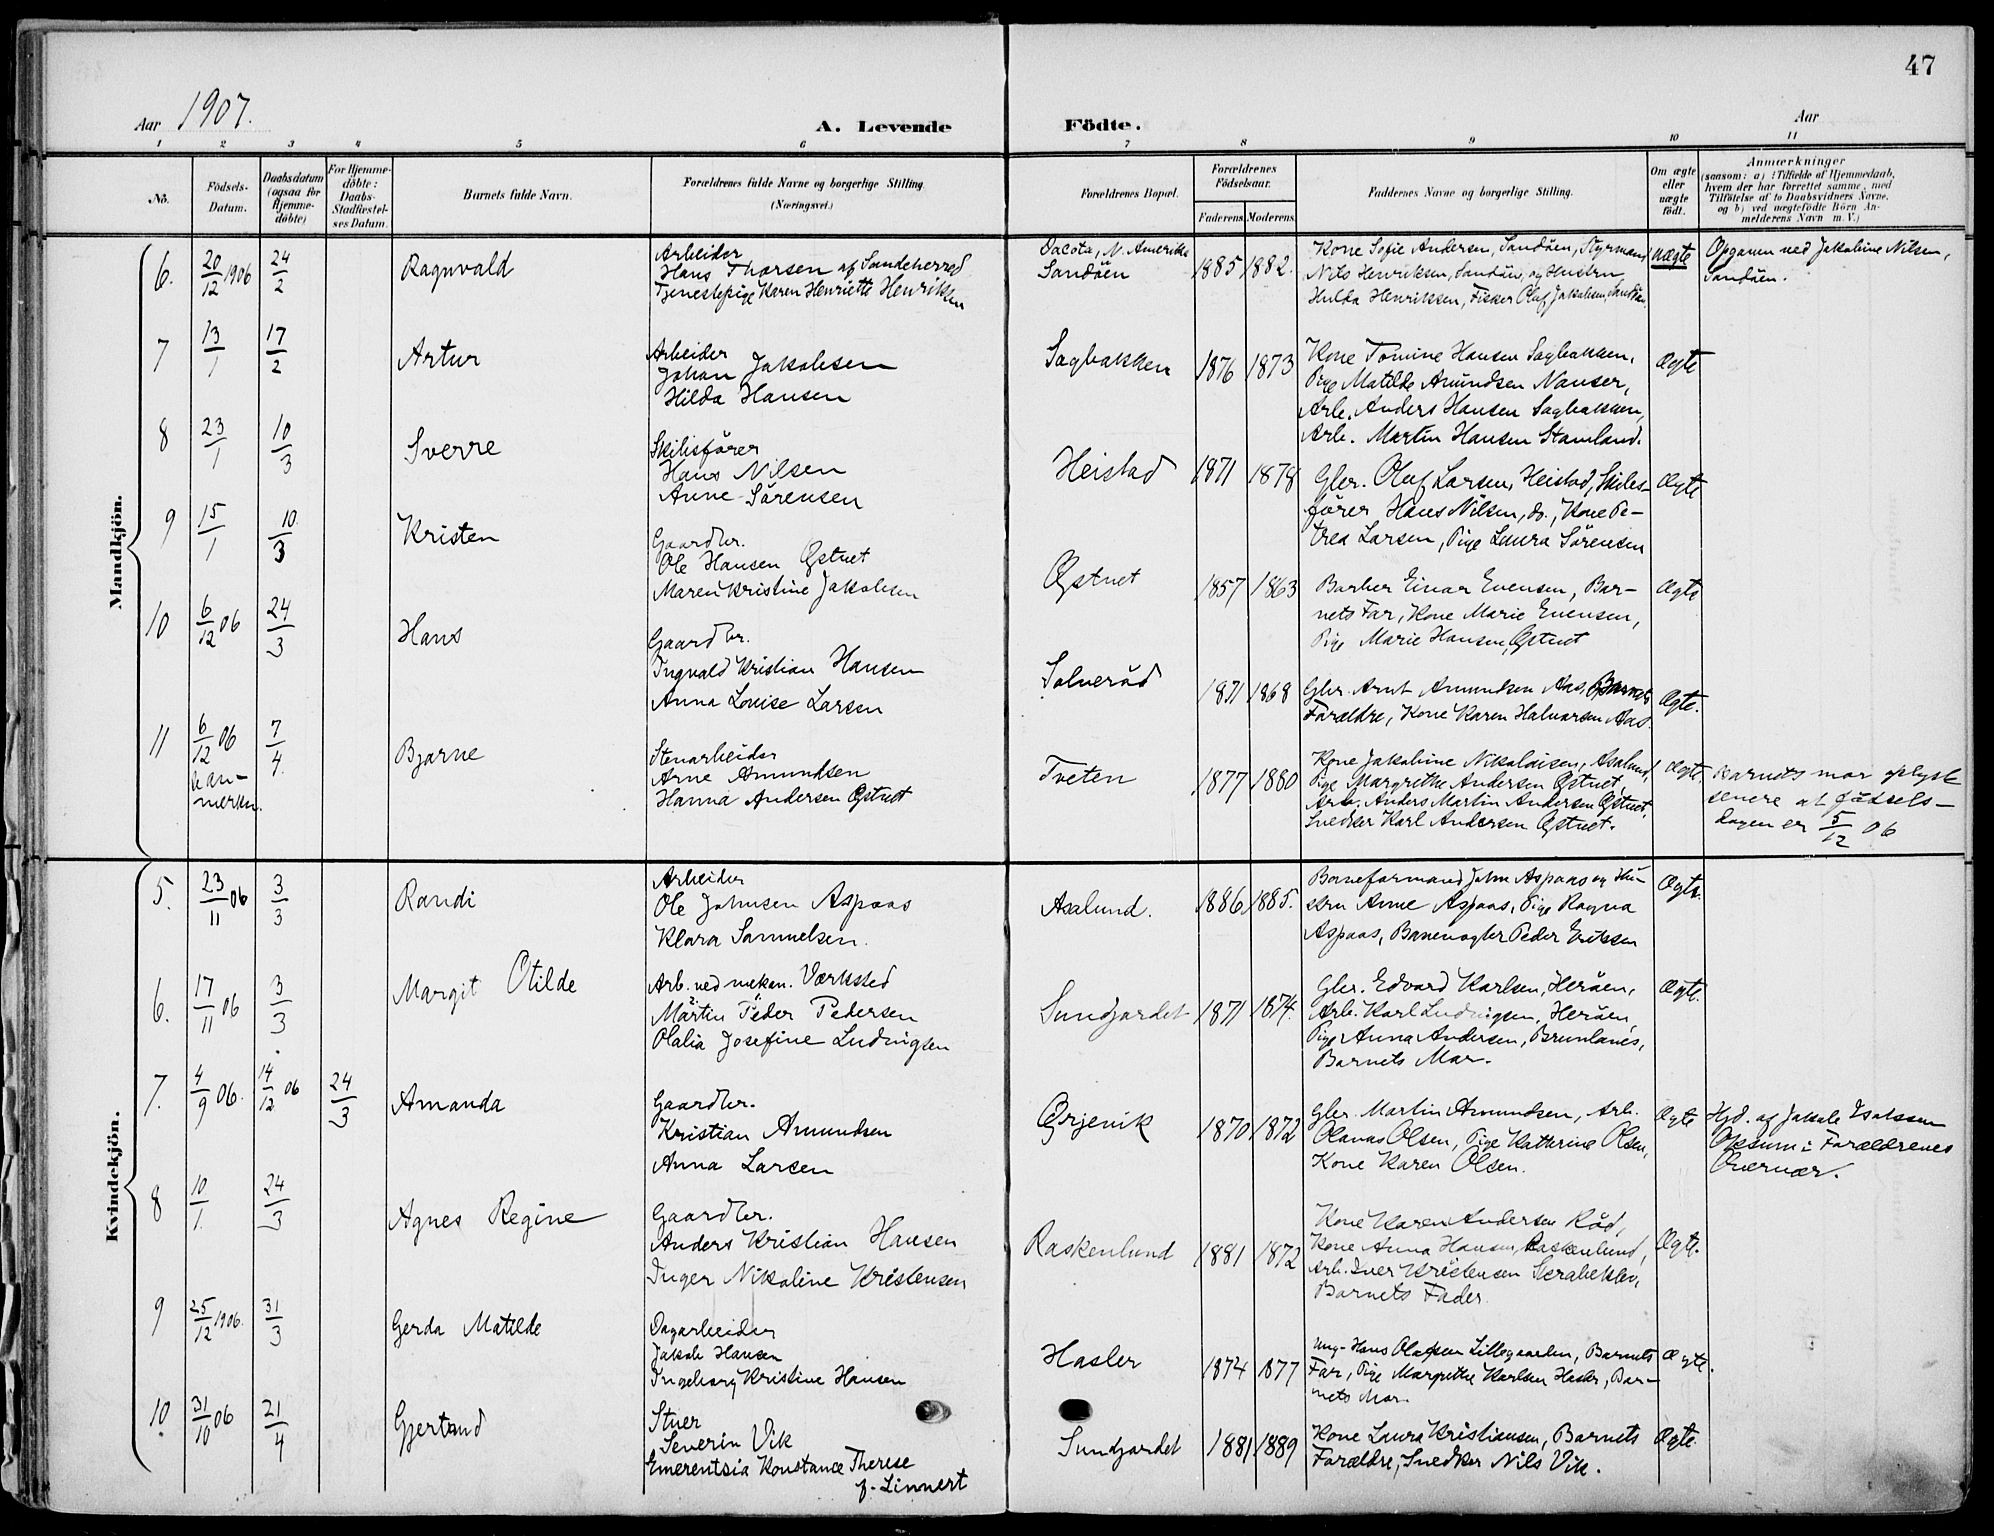 47
Aar 1907.
A. Levende Födte.
Aar
1 2 3 4 5 6 7 8 9 10 11
No.
Födsels-Datum.
Daabsdatum (ogsaa for Hjemme-döbte)
For Hjemme-döbte: Daabs-Stadfæstel-ses Datum.
Barnets fulde Navn.
Forældrenes fulde Navne og borgerlige Stilling. (Næringsvei.)
Forældrenes Bopæl.
Forældrenes Födselsaar.
Faderens. Moderens.
Faddernes Navne og borgerlige Stilling.
Om ægte eller uægte født.
Anmærkninger
(saasom: a) i Tilfælde af Hjemmedaab, hvem der har forrettet samme, med Tilföielse af to Daabsvidners Navne, og b) ved uægtefödte Börn An-melderens Navn m. V.)
Mandkjön.
6. 20/12 1906 24/2 Ragnvald
Arbeider
Hans Thorsen af Sandeherred
Tjenestepige Karen Henriette Henriksen
Dacota, N. Amerika
Sandöen 1885 1882.
Kone Sofie Andersen, Sandöen, Styrmand
Nils Henriksen, Sandöen, og Hustru
Hulda Henriksen, Fisker Olaf Jakobsen, Sandöen
uægte
Opgaven ved Jakobine Nilsen,
Sandöen.
7 13/1 17/2 Artur
Arbeider
Johan Jakobsen
Hilda Hansen
Sagbakken 1876 1873
Kone Tomine Hansen Sagbakken,
Pige Matilde Amundsen Nanser,
Arb. Anders Hansen Sagbakken,
Arb. Martin Hansen Stamland.
Ægte
8 23/1 10/3 Sverre
Skibsförer
Hans Nilsen
Anne Sörensen
Heistad 1871 1878
Gbr. Oluf Larsen, Heistad, Skibs-
förer Hans Nilsen, do., Kone Pe-
trea Larsen, Pige Laura Sörensen
Ægte
9 15/1 10/3 Kristen
Gaardbr.
Ole Hansen Østvet
Maren Kristine Jakobsen
Østvet 1857 1863
Barber Einar Evensen, Bar-
nets Far, Kone Marie Evensen,
Pige Marie Hansen, Østvet
Ægte
10 6/12 06 24/3 Hans
Gaardbr.
Ingvald Kristian Hansen
Anna Louise Larsen
Solveröd 1871 1868
Gbr. Arnt Amundsen Aas, Barnets
Forældre, Kone Karen Halvorsen Aas.
Ægte.
11 6/12 06 7/4 Bjarne
Stenarbeider
Arne Amundsen
Hanna Andersen Østvet
Tveten 1877 1880
Kone Jakobine Nikolaisen, Asalund,
Pige Margrethe Andersen Østvet,
Arb. Anders Martin Andersen Østvet,
Snedker Karl Andersen Østvet.
Ægte.
Barnets mor oplyst
senere at fødsels-
dagen er 5/12 06
Kvindekjön.
5. 23/11 06 3/3 Randi
Arbeider
Ole Johnsen Aspaas
Klara Samuelsen.
Asalund. 1886 1885.
Baneformand John Aspaas og Hu-
stru Anne Aspaas, Pige Ragna
Aspaas, Banevogter Peder Eriksen
Ægte.
6. 17/11 06 3/3 Margit Otilde
Arb. ved mekan. Værksted
Martin Peder Pedersen
Olalia Josefine Ludvigsen
Sundjordet 1871 1874.
Gbr. Edvard Karlsen, Heröen,
Arb. Karl Ludvigsen, Heröen,
Pige Anna Andersen, Brunlanes,
Barnets Mor.
Ægte.
7. 4/9 06. 14/12 06 24/3 Amanda
Gaardbr.
Kristian Amundsen
Anna Larsen
Ørjevik 1870 1872
Gbr. Martin Amundsen, Arb.
Olavas Olsen, Pige Kathrine Olsen,
Kone Karen Olsen.
Ægte
Hjd. af Jakob Isaksen
Opsum i Forældrenes
Overvær.
8 10/1 24/3 Agnes Regine
Gaardbr.
Anders Kristian Hansen
Inger Nikoline Kristensen
Raskenlund 1881 1872
Kone Karen Andersen Röd,
Kone Anna Hansen, Raskenlund,
Arb. Iver Kristensen Skrabeklev,
Barnets Fader.
Ægte.
9 25/12 1906. 31/3 Gerda Matilde
Dagarbeider
Jakob Hansen
Ingeborg Kristine Hansen
Hasler 1874 1877
Ung. Hans Olafsen Lillegaarden, Barnets
Far, Pige Margrethe Karlsen Hasler, Bar-
nets Mor.
Ægte.
10. 31/10 06 21/4 Gjertrud
Stuer
Severin Vik
Emerentsia Konstance Therese
f. Linnert
Sundjordet 1881 1889
Kone Laura Kristiansen, Barnets
Forældre, Snedker Nils Vik.
Ægte.